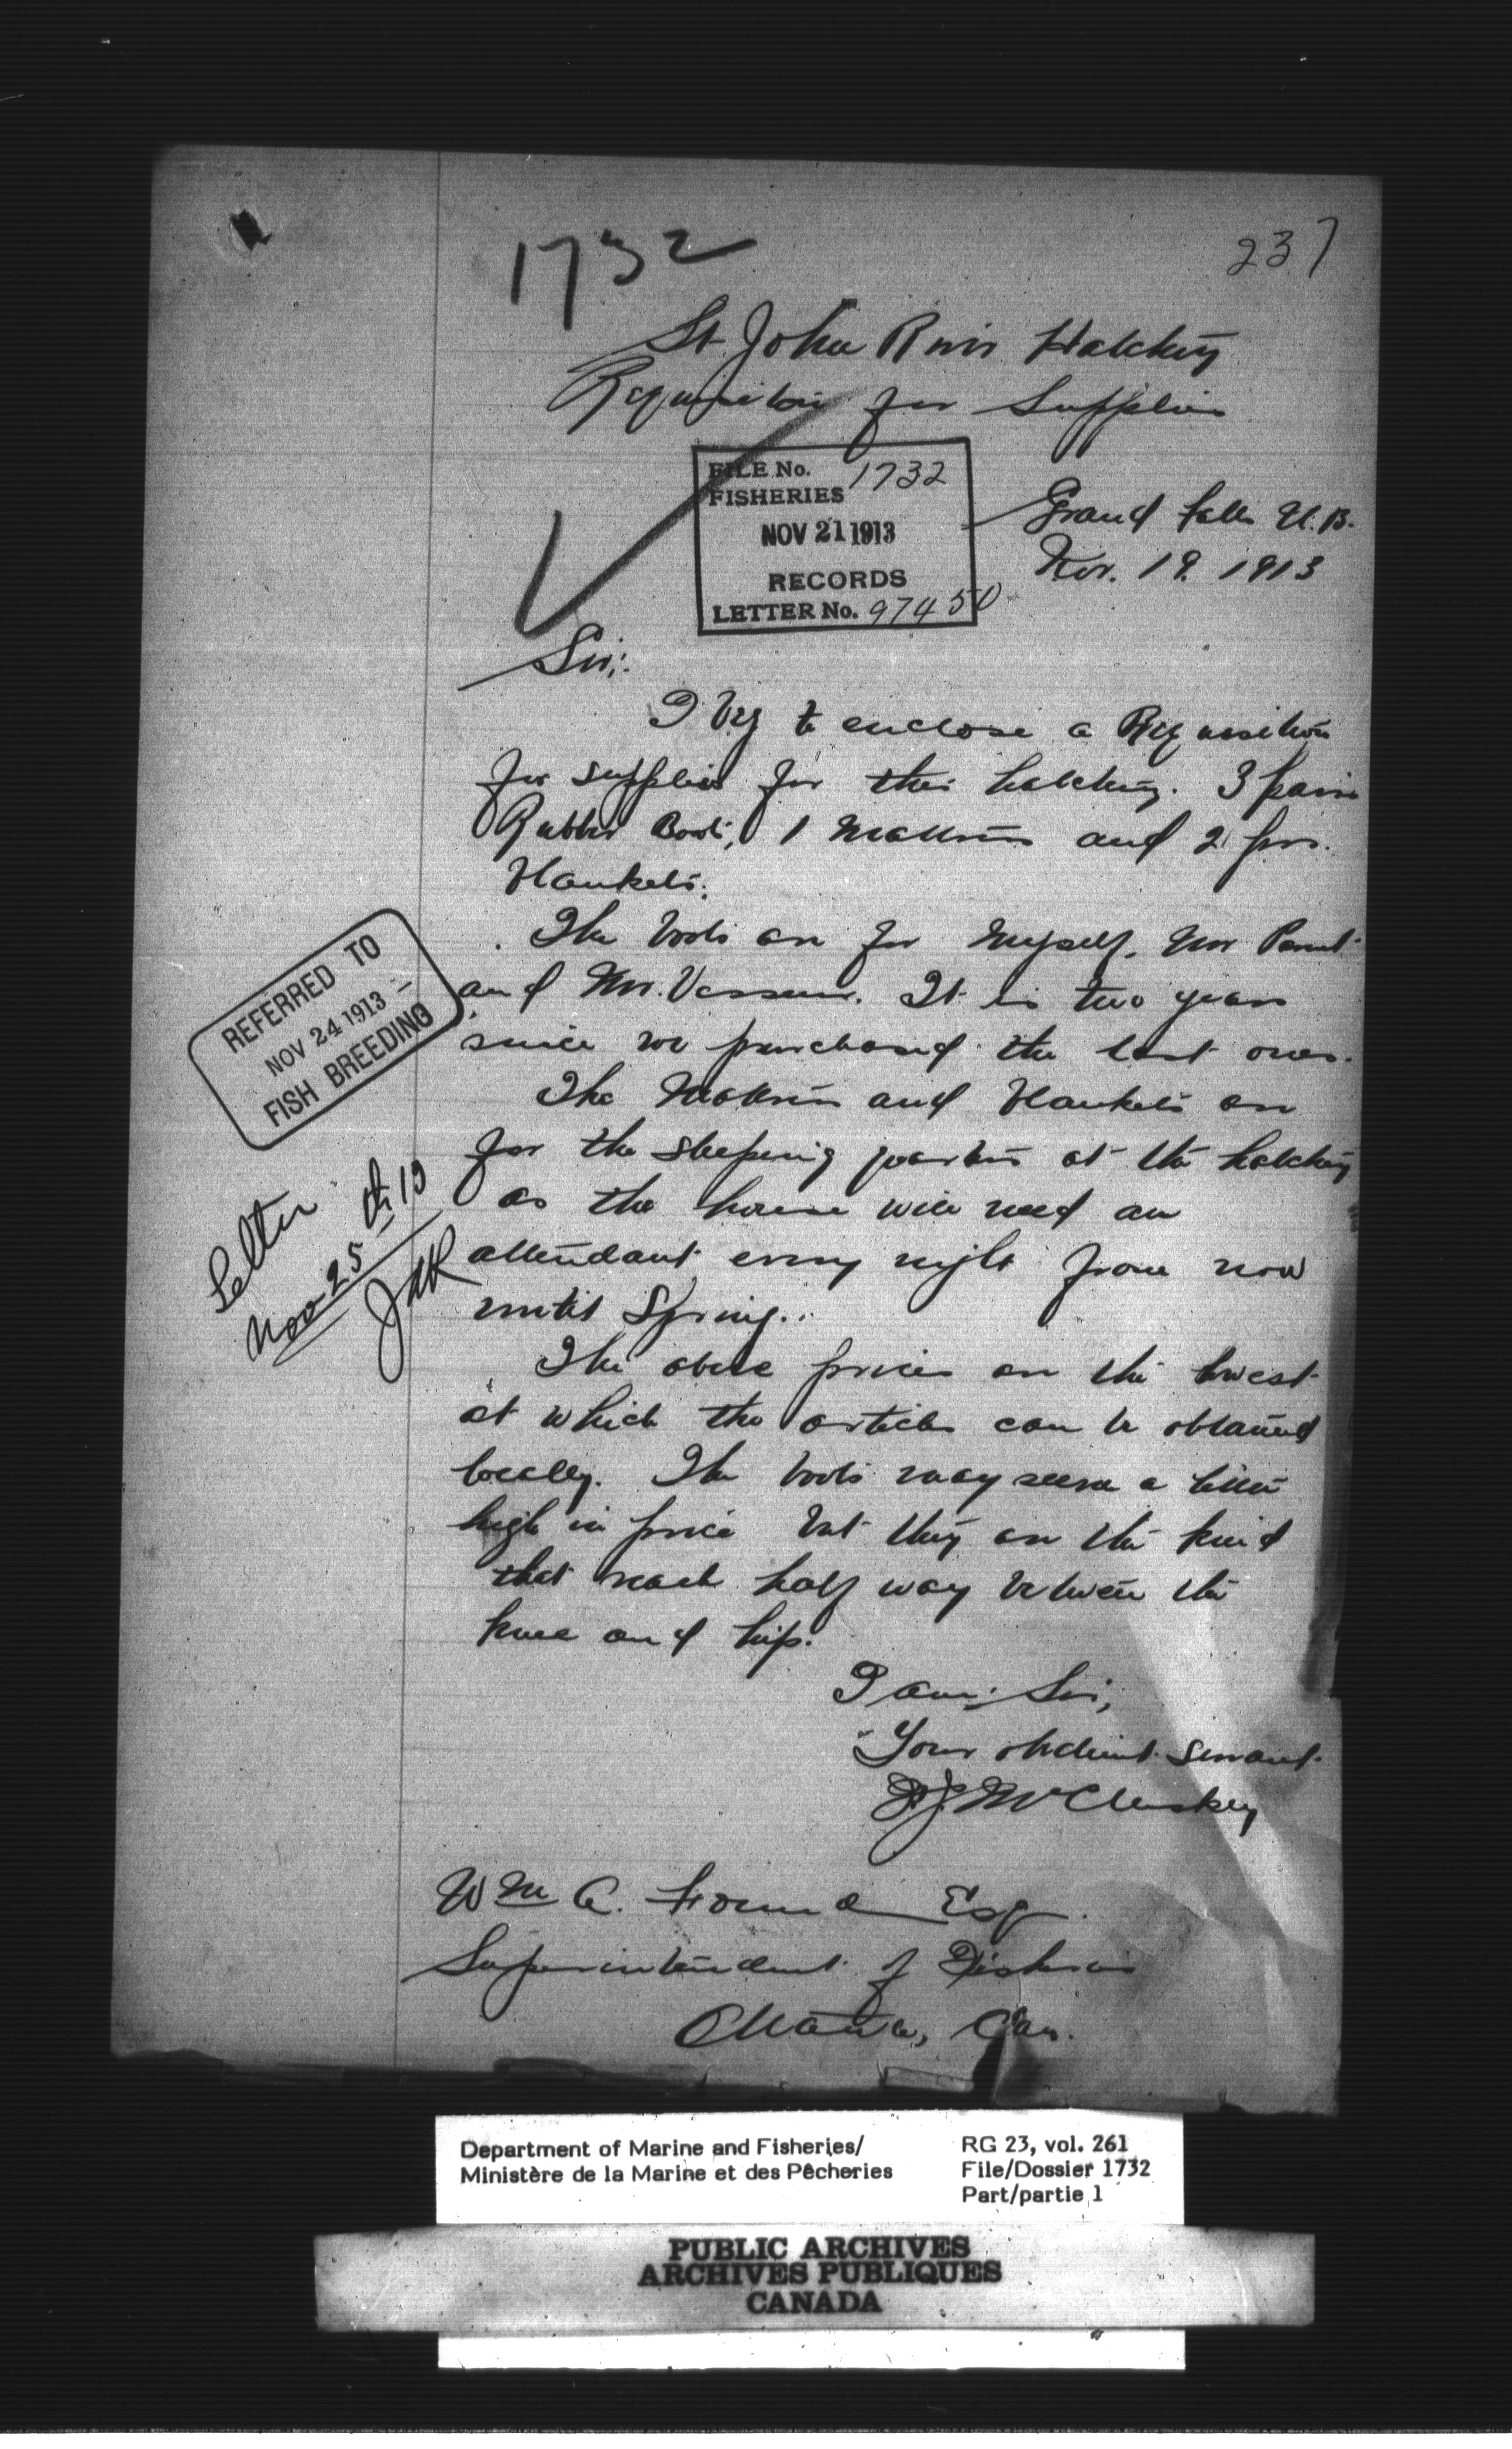 1732
237
St. John River Hatchery
Requisition for Supplies
FILE No. 1732
FISHERIES
NOV 21 1913
RECORDS
LETTER No. 97450
Grand Falls N.B.
Nov. 19. 1913
Sir;
I beg to enclose a Requisition
for supplies for this hatchery. 3 pairs
Rubber Boots, 1 Mattress and 2 prs.
Blankets.
The boots are for myself, Mr
and Mr. It is two years
since we purchased the last ones.
The Mattress and Blankets are
for the sleeping quarters at the hatchery
as the house will need an
attendant every night from now
until Spring.
The above prices are the lowest
at which the articles can be obtained
locally. The boots may seem a little
high in price but they are the kind
that reach half way between the
knee and hip.
I am, Sir,
Your obedient servant
McCluskey
REFERRED TO
NOV 24 1913
FISH BREEDING
Letter
Nov 25th 13
Wm A. Found Esq.
Superintendent of Fisheries
Ottawa, Can.
Department of Marine and Fisheries/
Ministère de la Marine et des Pêcheries
RG 23, vol. 261
File/Dossier 1732
Part/partie 1
PUBLIC ARCHIVES
ARCHIVES PUBLIQUES
CANADA